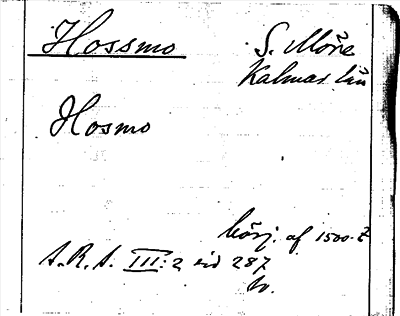 Hossmo
S. Möre
Kalmar län
Hosmo
börj. af 1500-t
S.R.A. III:2 sid 287
or.